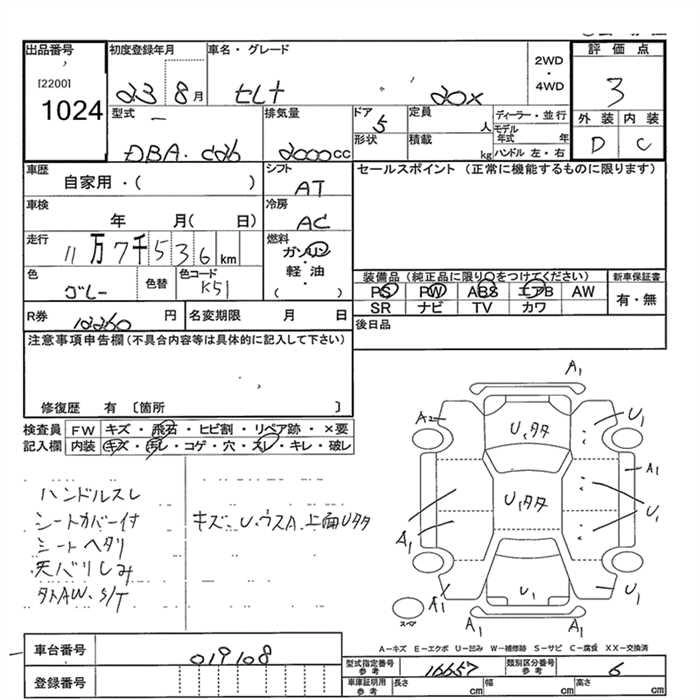 出品番号
[2200]
1024
初度登録年月
23 8月
車名・グレード
セレナ 20X
2WD
・
4WD
評価点
3
外装 内装
D C
型式
DBA-C26
排気量
2000cc
ドア 5
形状
定員 人
積載 kg
ディーラー・並行
モデル年式 年
ハンドル 左・右
車歴
自家用・( )
シフト
AT
セールスポイント (正常に機能するものに限ります)
車検
年 月( 日)
冷房
AC
走行
11万7千536km
燃料
ガソリン・
軽油・
( )
色
グレー
色替
色コード
K51
装備品(純正品に限り○をつけてください)
PS PW ABS エアB AW
SR ナビ TV カワ
新車保証書
有・無
R券 12260円
名変期限 月 日
後日品
注意事項申告欄(不具合内容等は具体的に記入して下さい)
修復歴 有〔箇所 〕
検査員記入欄
FW キズ・飛石・ヒビ割・リペア跡・×要
内装 キズ・汚レ・コゲ・穴・スレ・キレ・破レ
ハンドルスレ
シートカバー付
シートヘタリ
天バリしみ
タトAW.S/T
キズ、U、ウスA、上面Uタタ
A1
A2
U.タタ
U1
A1
U.タタ
U1
A1
A1
U1
U1
A1
スペア
A-キズ E-エクボ U-凹み W-補修跡 S-サビ C-腐食 XX-交換済
車台番号
019108
登録番号
型式指定番号
参考
16657
類別区分番号
参考
6
車庫証明用
参考
長さ cm
幅 cm
高さ cm